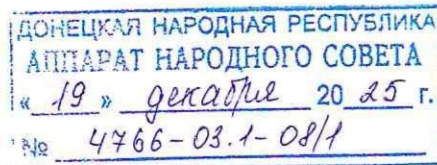 ДОНЕЦКАЯ НАРОДНАЯ РЕСПУБЛИКА
АППАРАТ НАРОДНОГО СОВЕТА
« 19 » декабря 20 25 г.
№ 4766-03.1-08/1